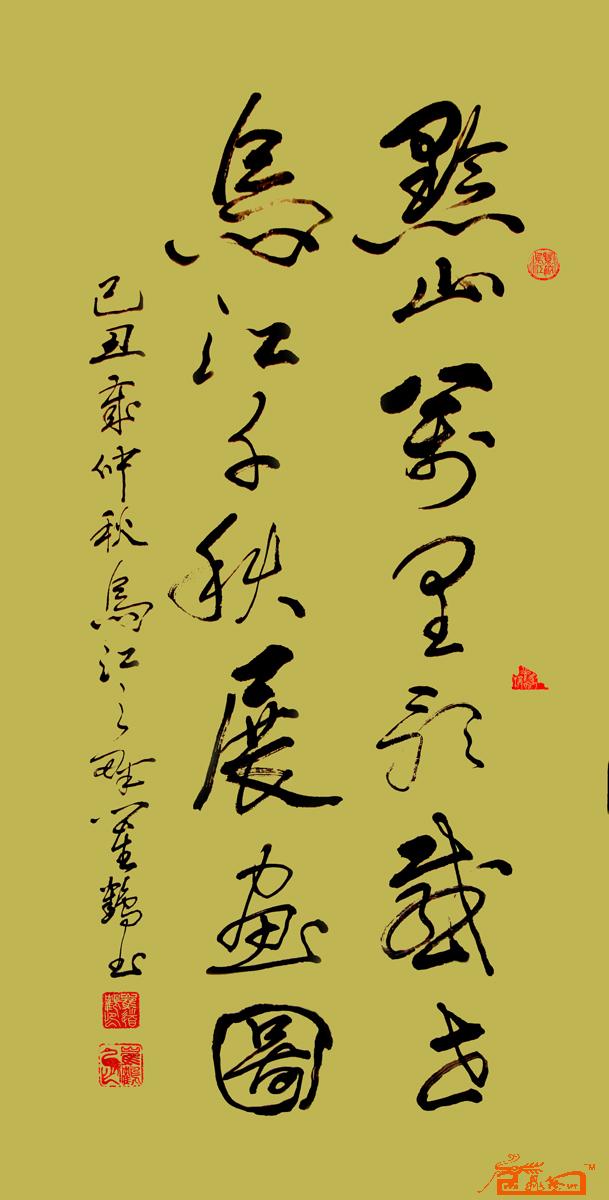 黔山萬里歌盛世
烏江千秋展畫圖
己丑歲仲秋烏江之畔羅鶴書